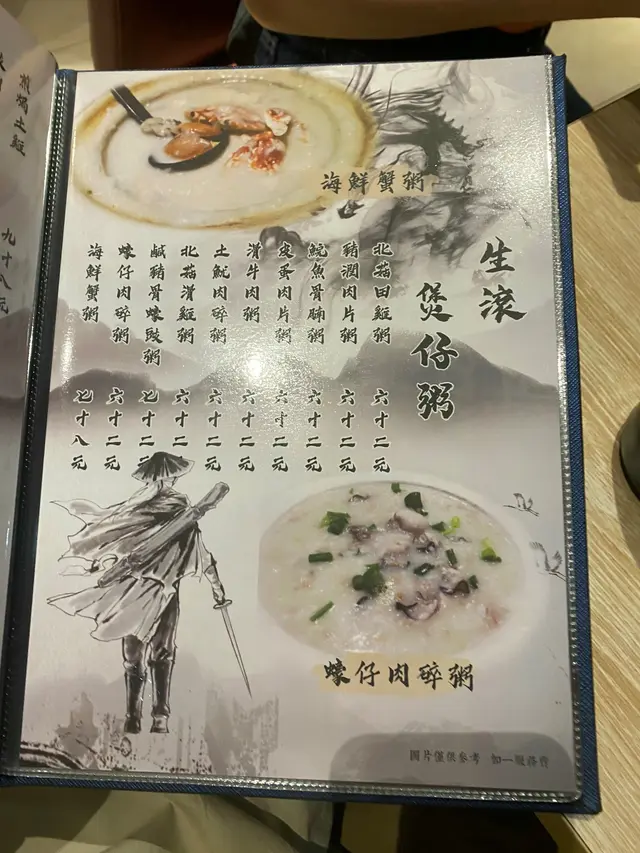 海鮮蟹粥
生滾
煲仔粥
北菇田雞粥 六十二元
豬潤肉片粥 六十二元
鯇魚骨腩粥 六十二元
皮蛋肉片粥 六十二元
滑牛肉粥 六十二元
土魷肉碎粥 六十二元
北菇滑雞粥 六十二元
鹹豬骨蠔豉粥 七十二
蠔仔肉碎粥 六十二元
海鮮蟹粥 七十八元
蠔仔肉碎粥
圖片僅供參考 加一服務費
九十八元